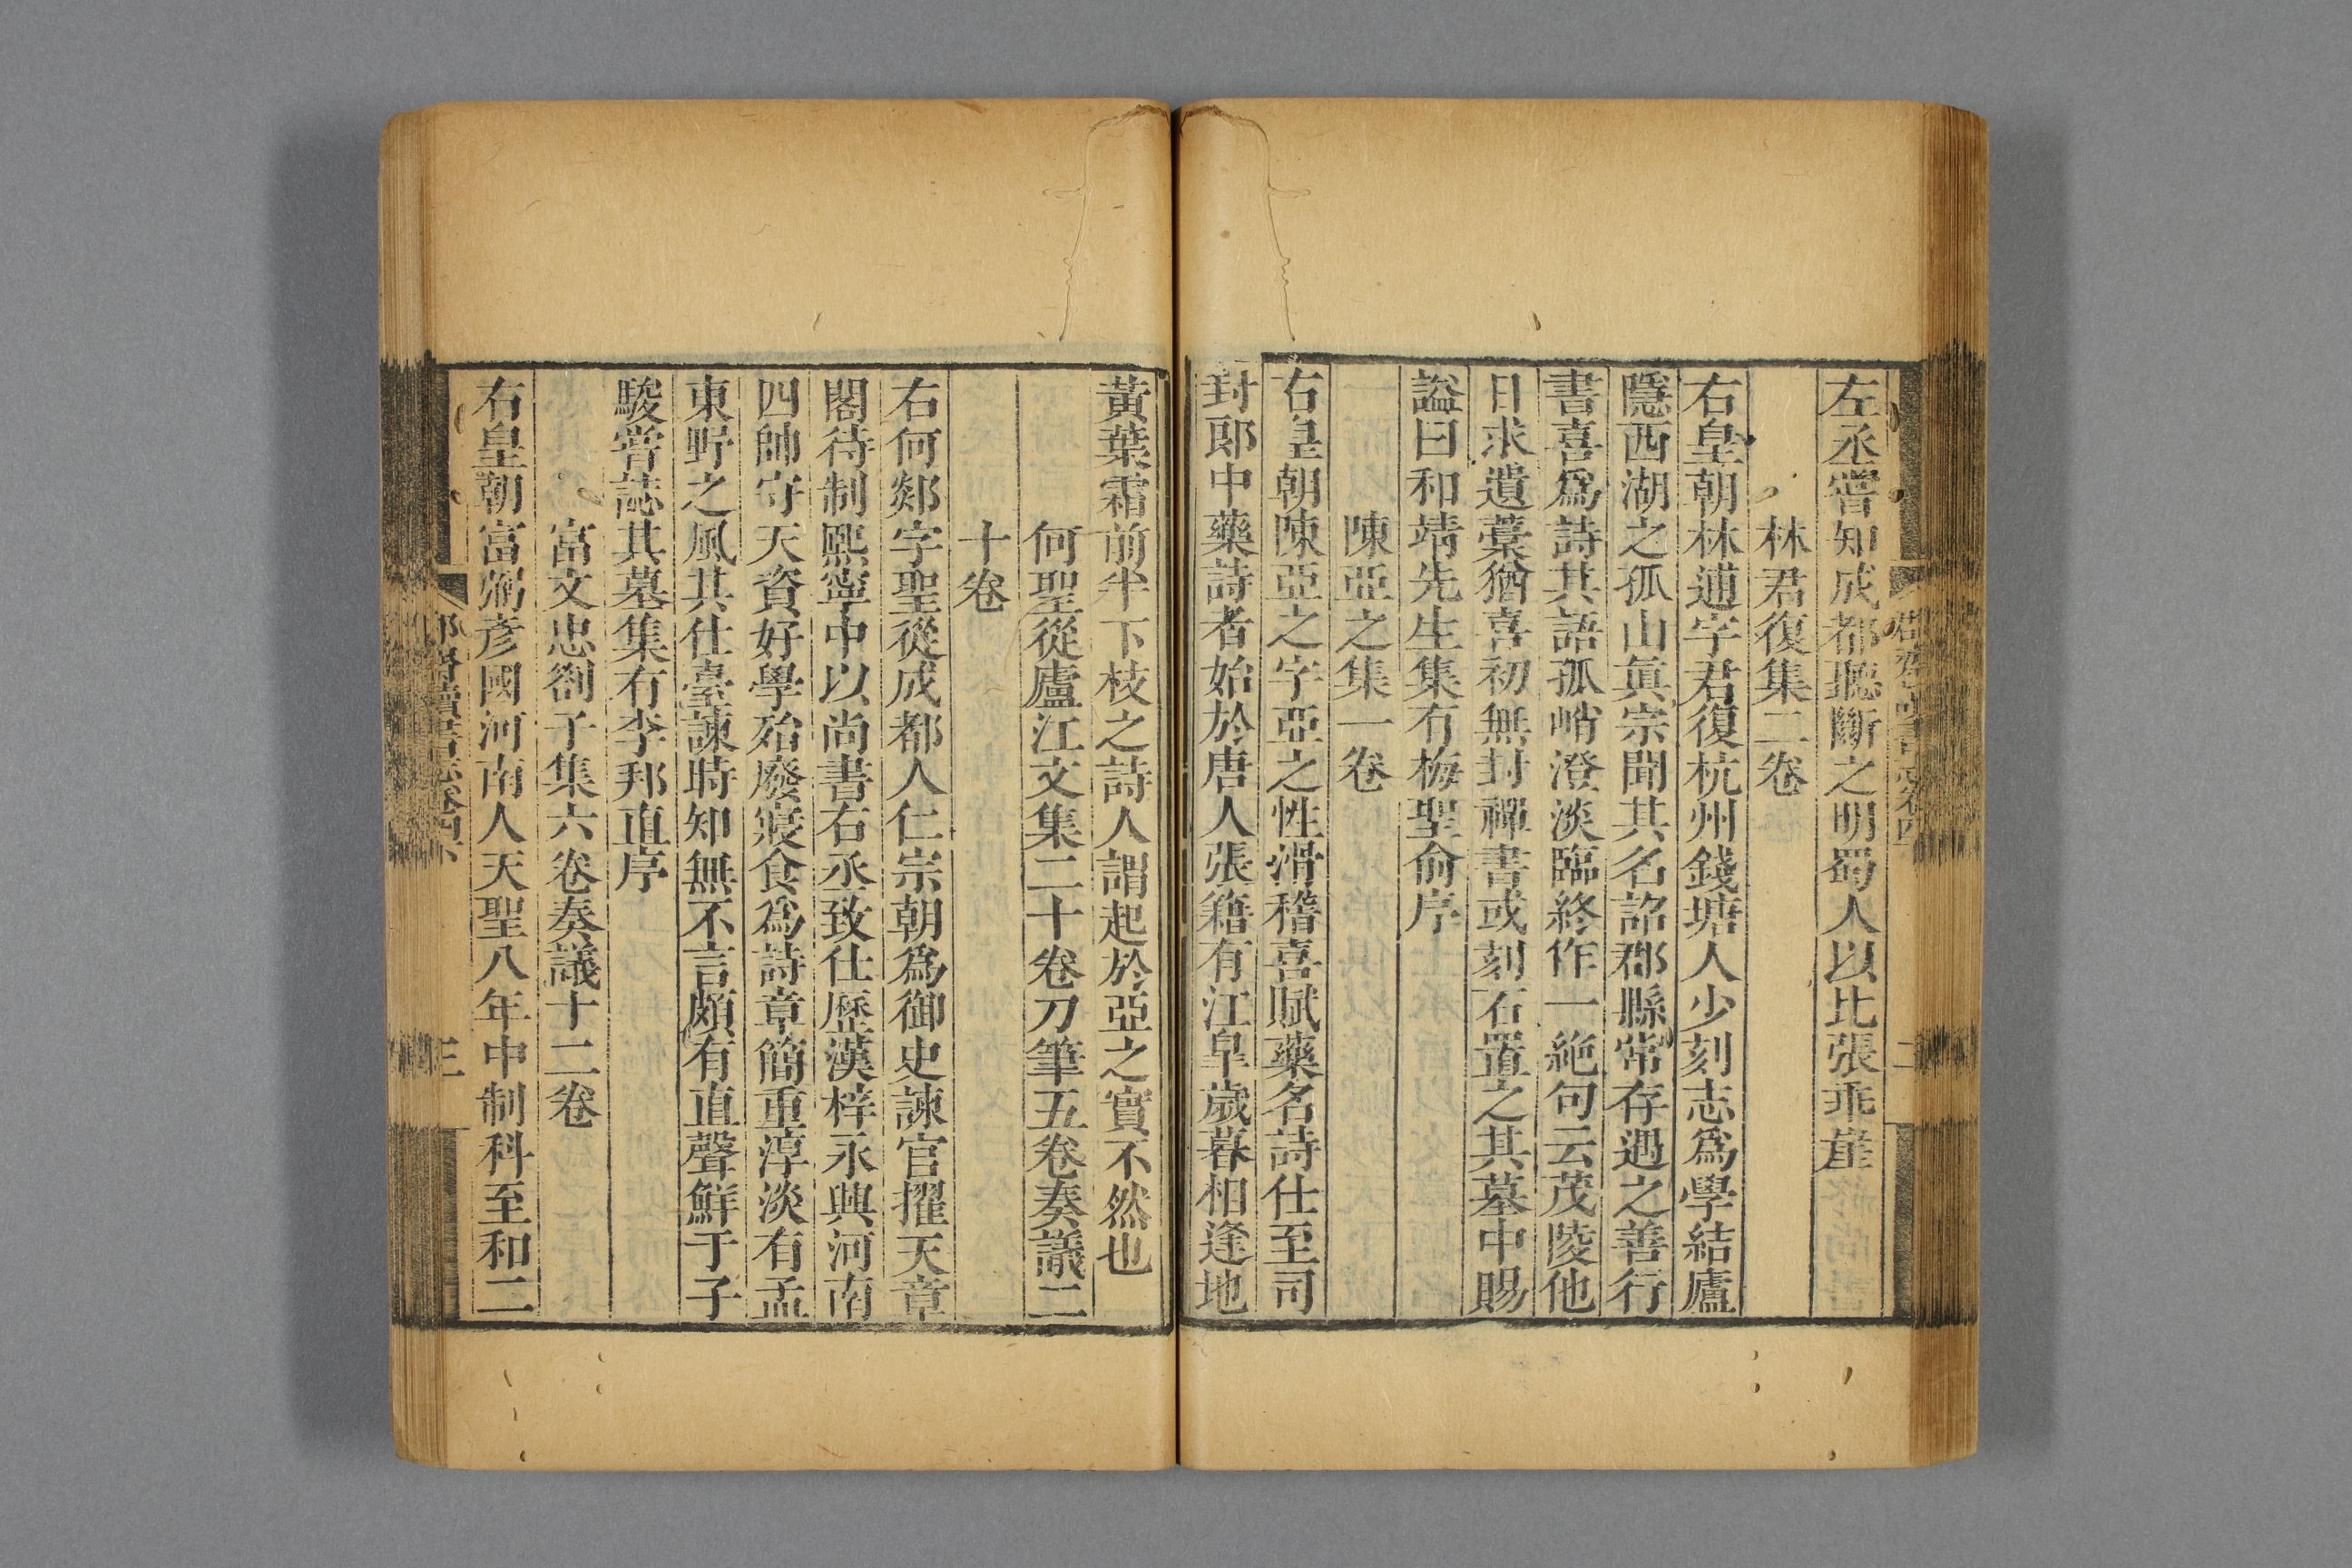 左丞嘗知成都聽斷之明蜀人以比張乖崖
林君復集二卷
右皇朝林逋字君復杭州錢塘人少刻志爲學結廬
隱西湖之孤山眞宗聞其名詔郡縣常存遇之善行
書喜爲詩其語孤峭澄淡臨終作一絶句云茂陵他
日求遺藁猶喜初無封禪書或刻石置之其墓中賜
謚曰和靖先生集有梅聖俞序
陳亞之集一卷
右皇朝陳亞之字亞之性滑稽喜賦藥名詩仕至司
封郎中藥詩者始於唐人張籍有江皐歲暮相逢地
黃葉霜前半下枝之詩人謂起於亞之實不然也
何聖從廬江文集二十卷刀筆五卷奏議二
十卷
右何郯字聖從成都人仁宗朝爲御史諫官擢天章
閣待制熙寧中以尚書右丞致仕歷漢梓永興河南
四帥守天資好學殆廢寢食爲詩章簡重淳淡有孟
東野之風其仕臺諫時知無不言頗有直聲鮮于子
駿嘗誌其墓集有李邦直序
富文忠劄子集六卷奏議十二卷
右皇朝富弼彦國河南人天聖八年中制科至和二
三